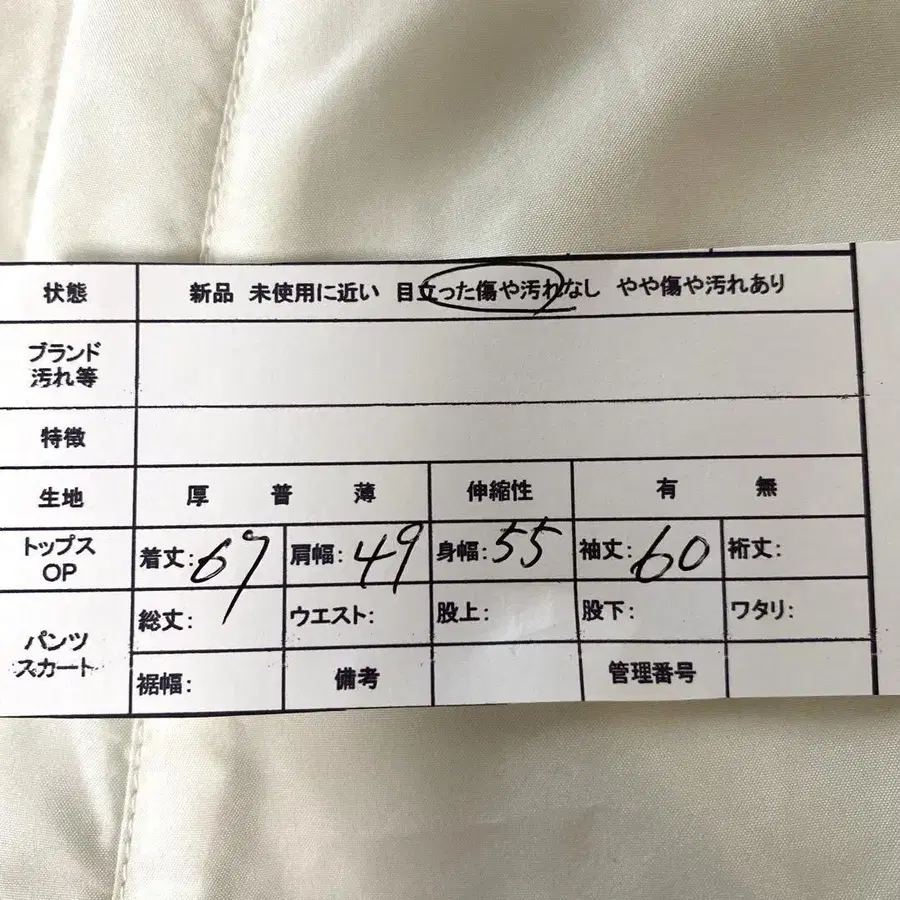 状態 新品 未使用に近い 目立った傷や汚れなし やや傷や汚れあり
ブランド
汚れ等
特徴
生地 厚 普 薄 伸縮性 有 無
トップス
OP
着丈:67 肩幅:49 身幅:55 袖丈:60 裄丈:
パンツ
スカート
総丈: ウエスト: 股上: 股下: ワタリ:
裾幅: 備考 管理番号